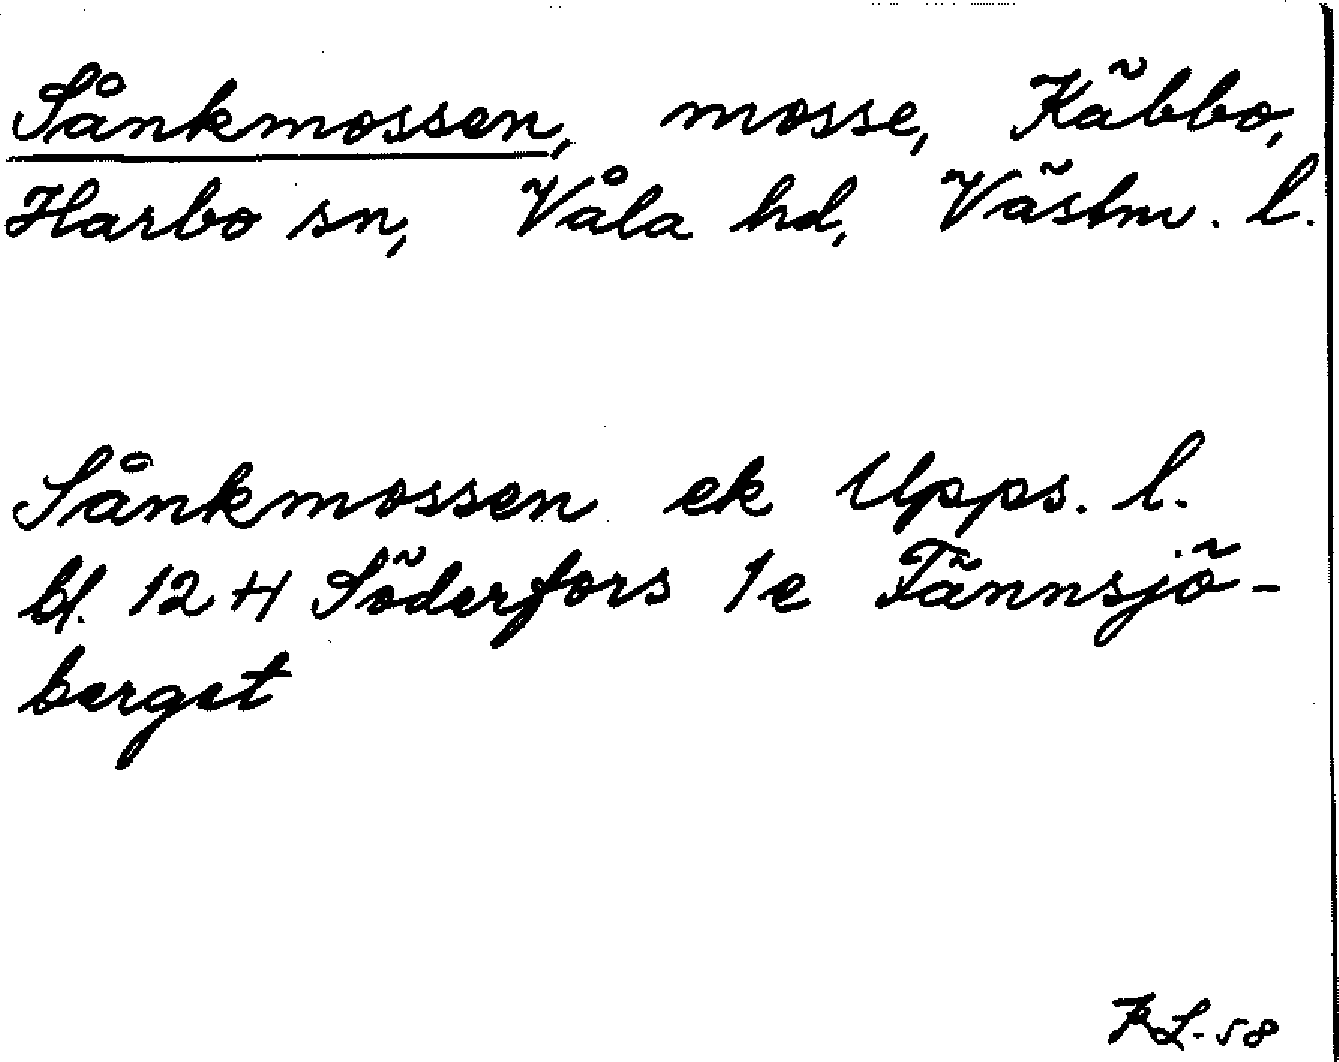 Sånkmossen, mosse, Käbbo,
Harbo sn, Våla hd, Västm. l.
Sånkmossen ek Upps. l.
bl. 12 H Söderfors 1e Tännsjö-
berget
KL-58